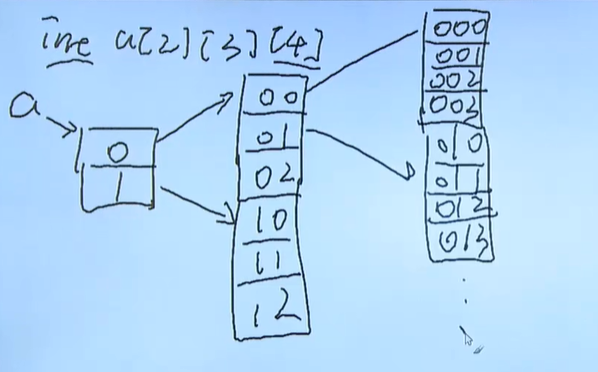 int a[2][3][4]
a
0
1
00
01
02
10
11
12
000
001
002
003
010
011
012
013